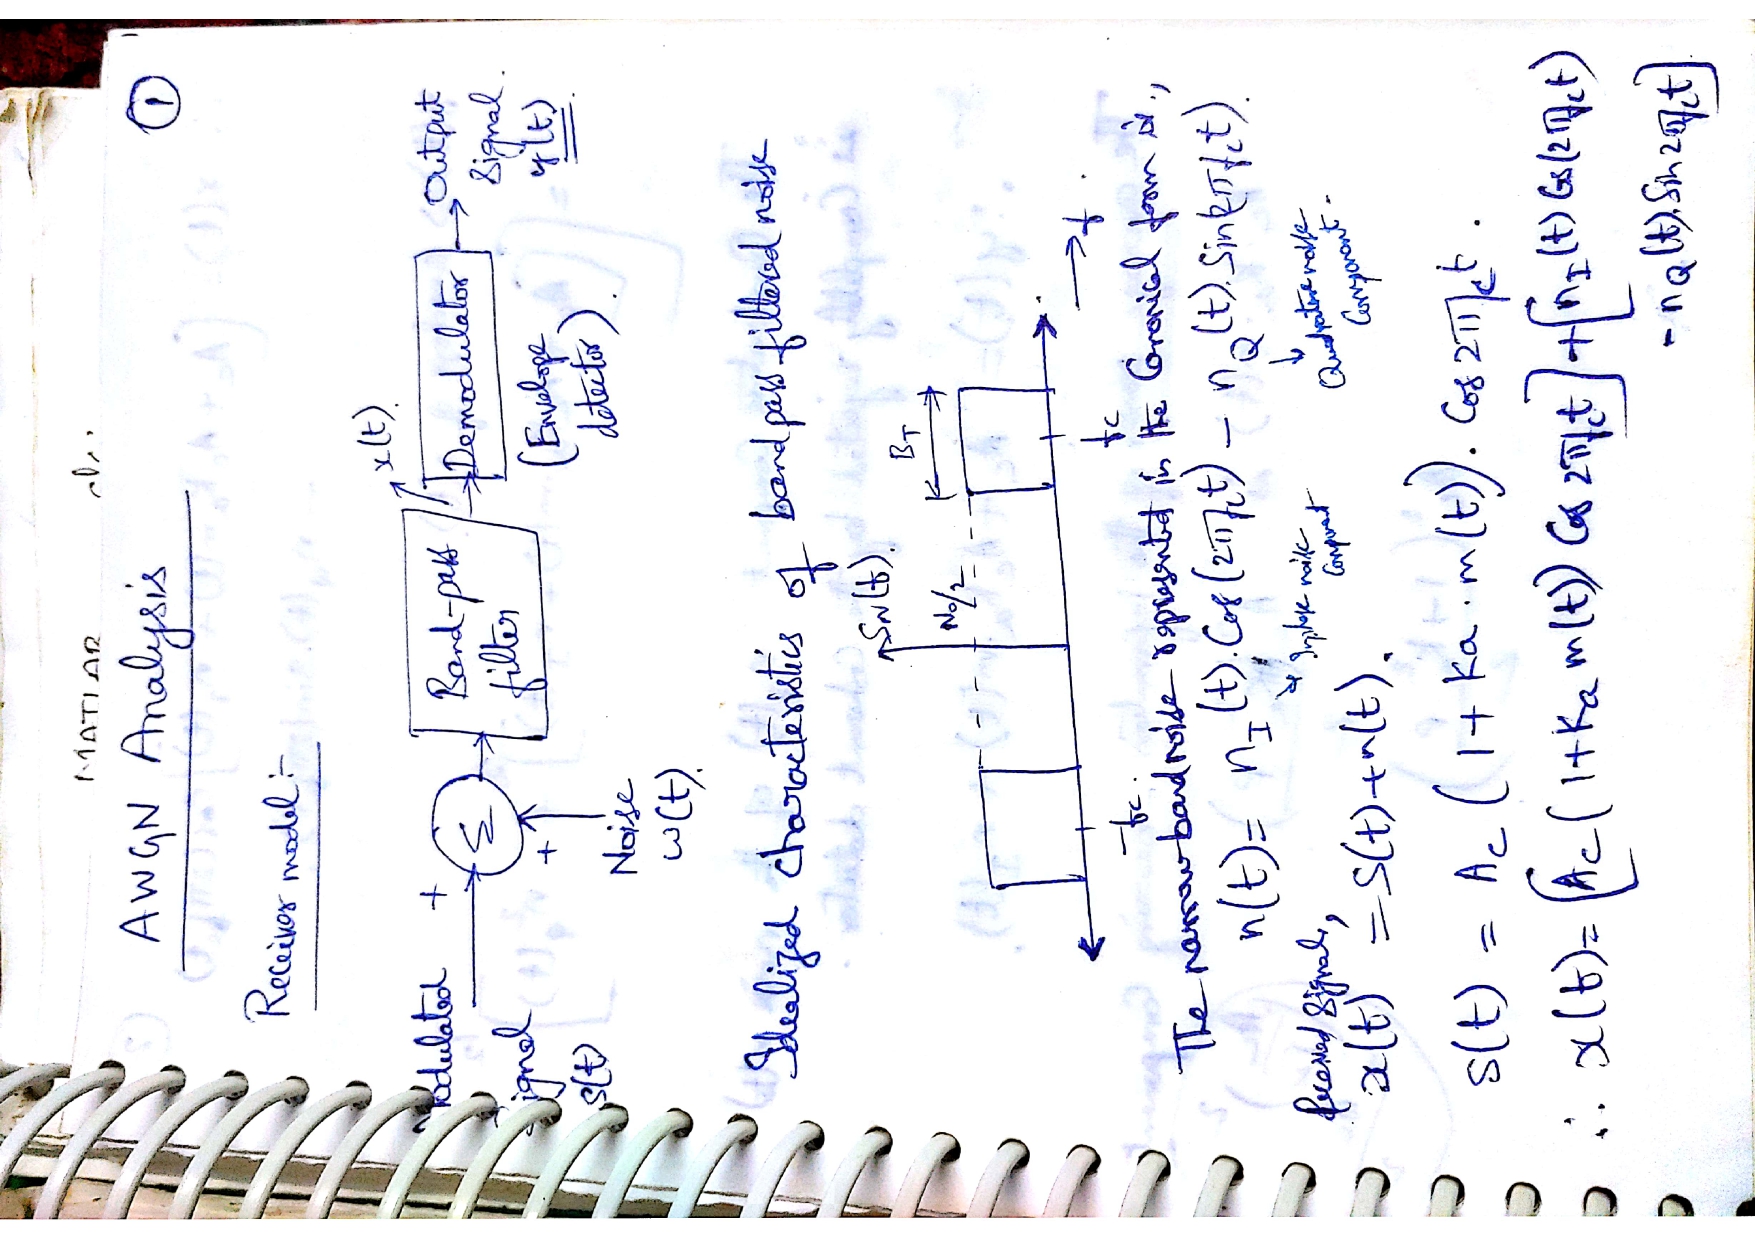 MATLAB
①
AWGN Analysis
Receiver model:-
Modulated Signal s(t)
+
Σ
+
Noise w(t).
Band-pass filter
x(t).
Demodulator
(Envelope detector).
Output Signal y(t).
Idealized characteristics of band pass filtered noise
SN(f).
N0/2
BT
-fc
fc
f
The narrow band noise represented in the Cononical form is,
n(t) = nI(t).Cos(2πfct) - nQ(t).Sin(2πfct).
↓ Inphase noise Component
↓ Quadrature noise Component.
received signal,
x(t) = s(t) + n(t).
s(t) = Ac (1 + Ka . m(t)). Cos 2πfct.
∴ x(t) = [Ac (1+Ka m(t)) Cos 2πfct] + [nI(t) Cos(2πfct)
- nQ(t).Sin 2πfct]